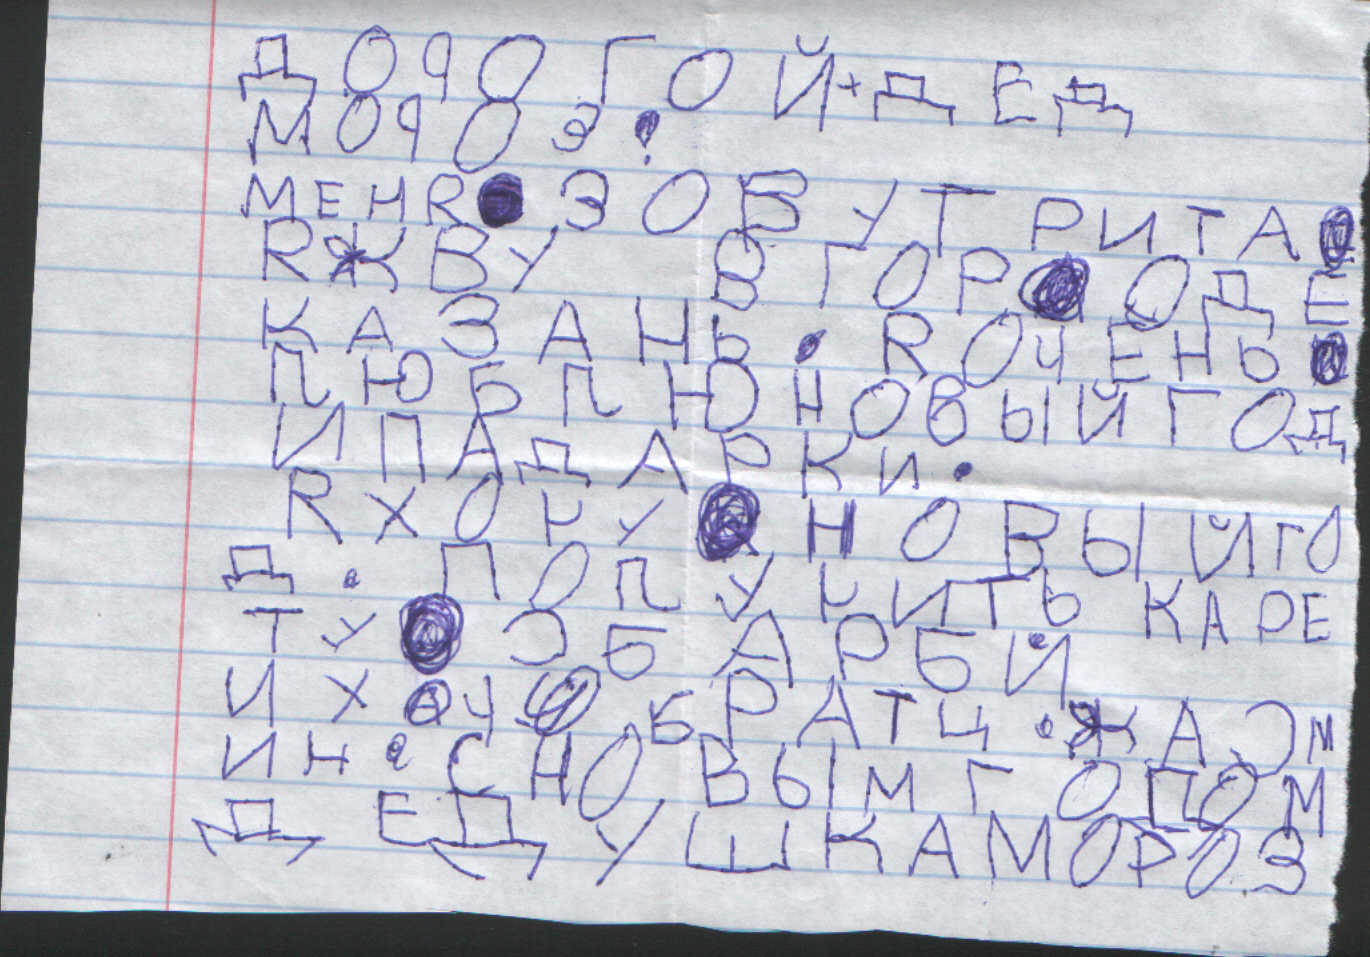 ДОРОГОЙ ДЕД
МОРОЗ!
МЕНЯ ЗОВУТ РИТА
Я ЖВУ В ГОРОДЕ
КАЗАНЬ. Я ОЧЕНЬ
ЛЮБЛЮ НОВЫЙ ГОД
И ПАДАРКИ.
Я ХОЧУ НОВЫЙ ГО
Д. ПОЛУЧИТЬ КАРЕ
ТУ С БАРБИ
И ХАЧУ БРАТЦ. ЖАСМ
ИН. С НОВЫМ ГОДОМ
ДЕДУШКА МОРОЗ